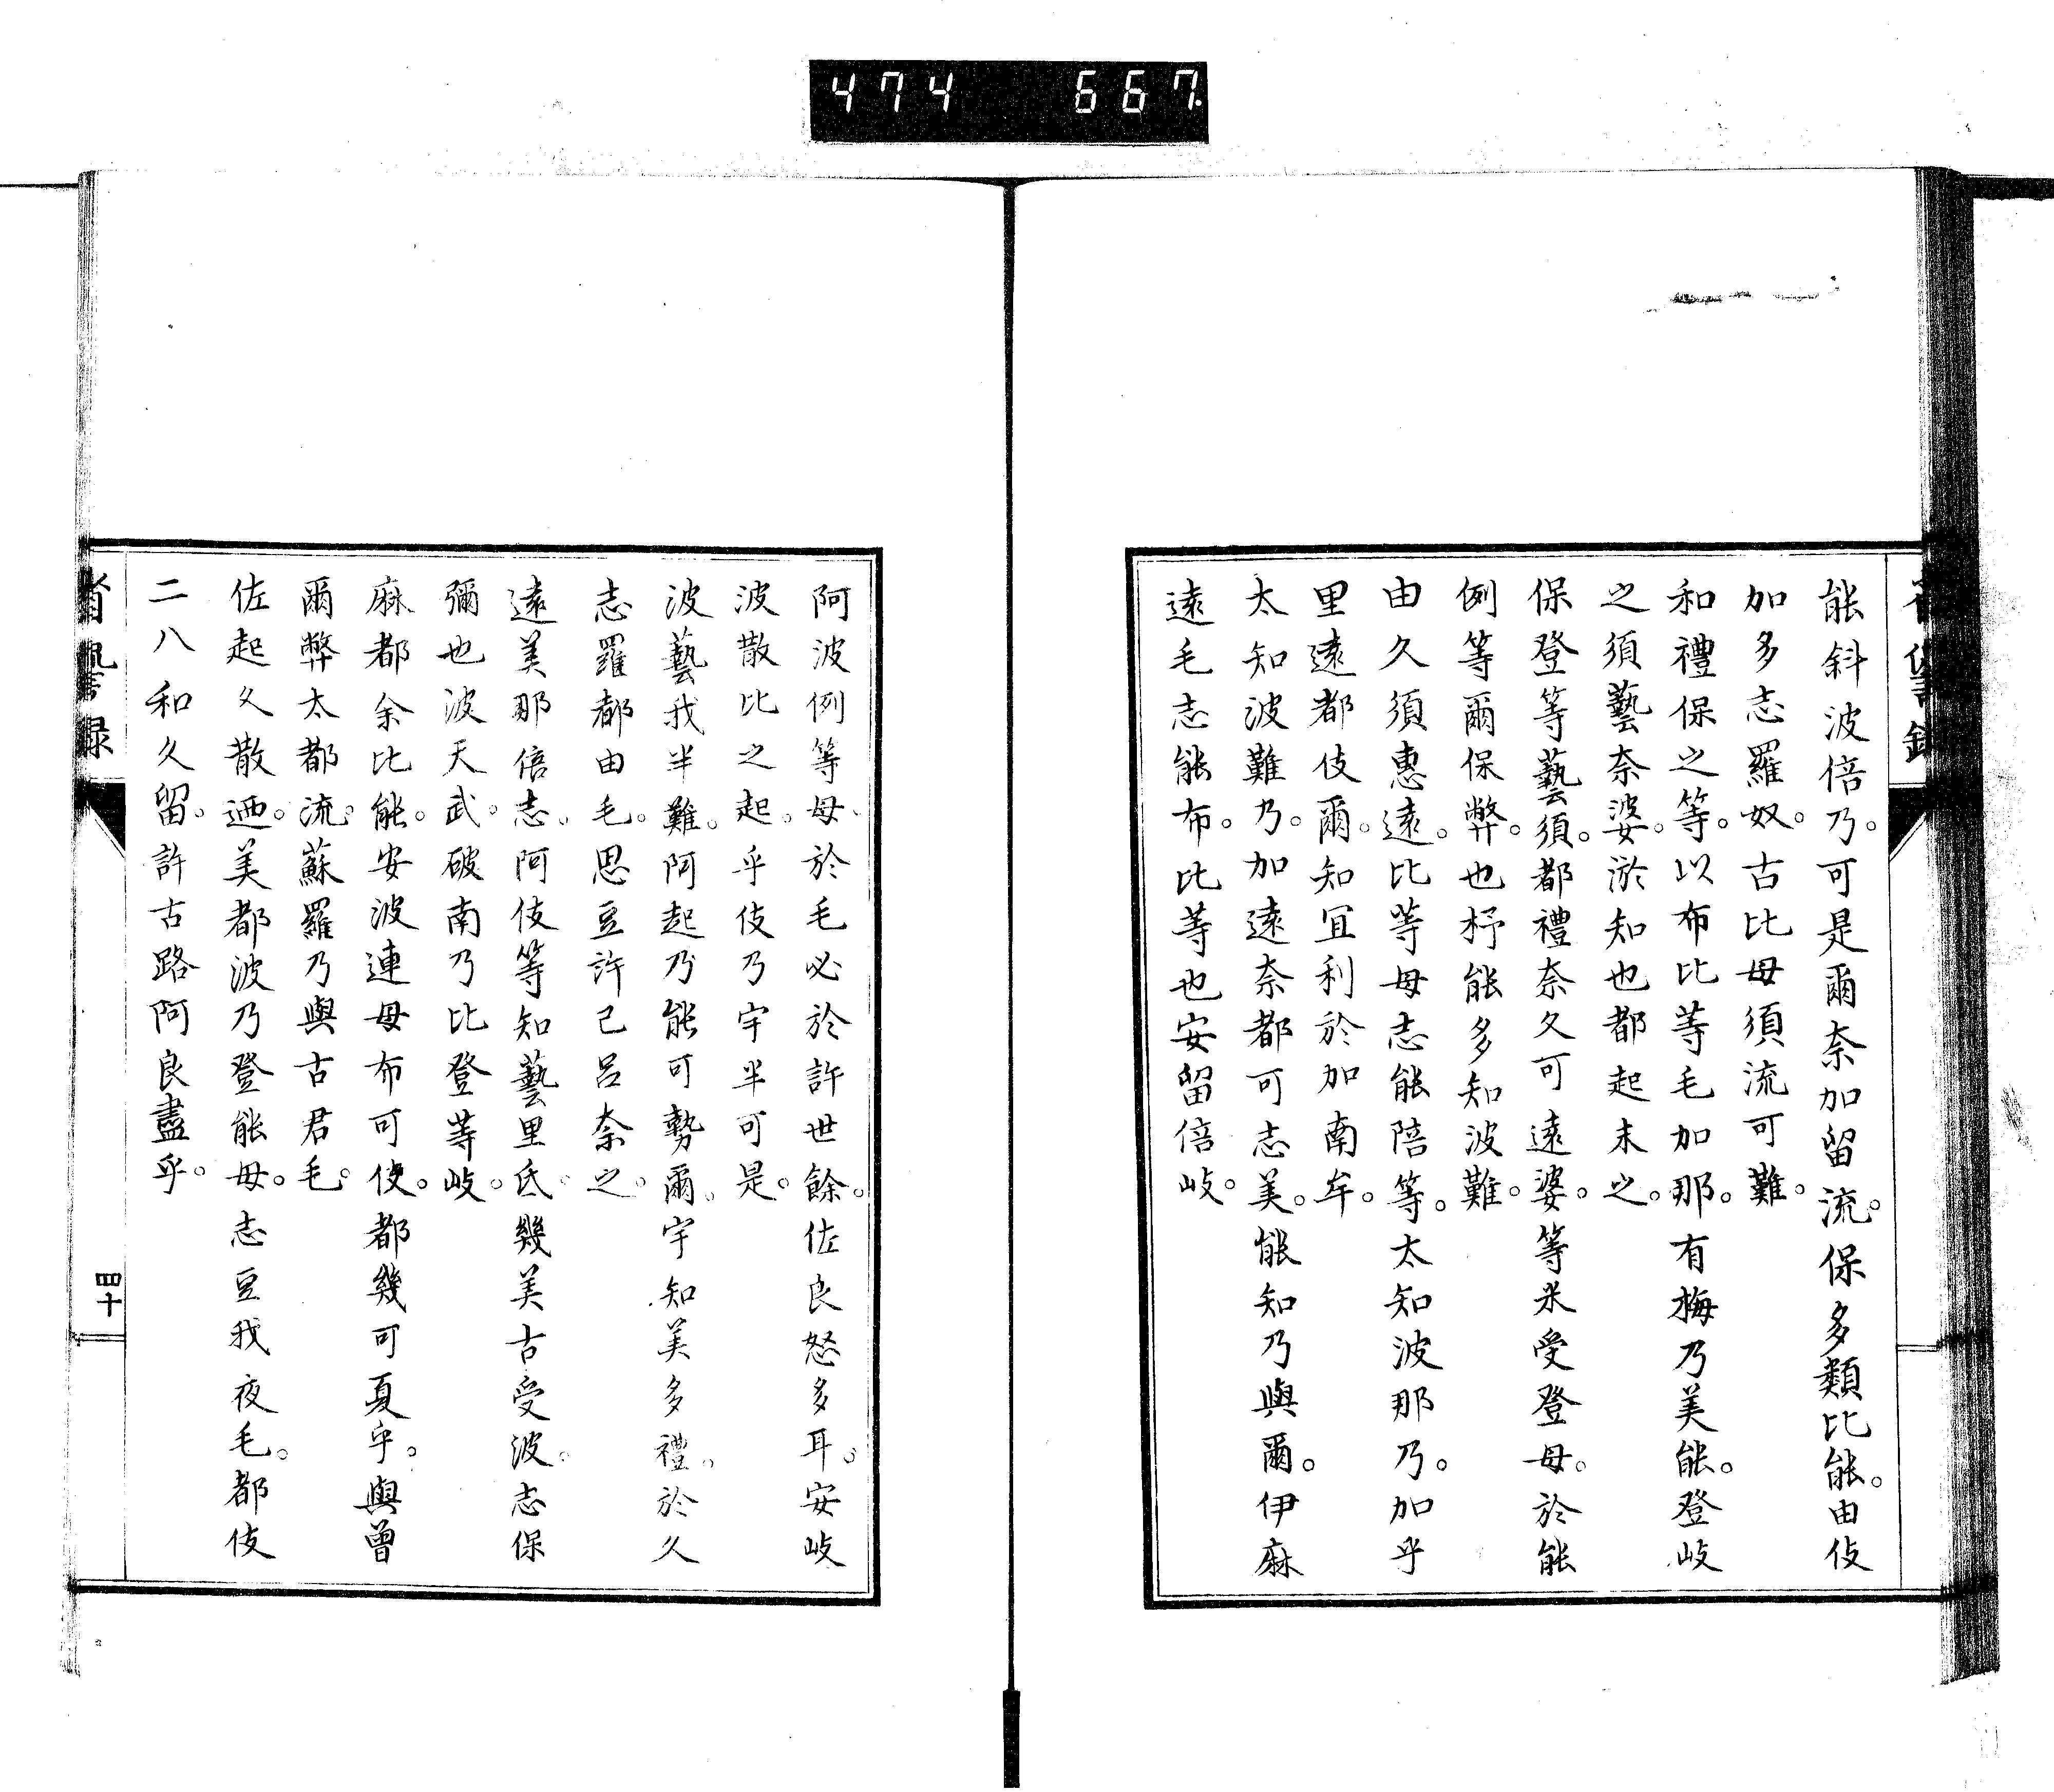 474 667
能斜波倍乃。可是爾奈加留流。保多類比能。由伎
加多志羅奴。古比母須流可難。
和禮保之等。以布比等毛加那。有梅乃美能。登岐
之須藝奈婆。淤知也都起末之。
保登等藝須。都禮奈久可遠婆。等米受登母。於能
例等爾保弊。也杼能多知波難。
由久須惠遠。比等母志能陪等。太知波那乃。加乎
里遠都伎爾。知冝利於加南牟。
太知波難乃。加遠奈都可志美。能知乃與爾。伊麻
遠毛志能布。比等也安留倍岐。
阿波例等母、於毛必於許世餘。佐良怒多耳。安岐
波散比之起。乎伎乃宇半可是。
波藝我半難。阿起乃能可勢爾。宇知美多禮。於久
志羅都由毛。思豆許己呂奈之。
遠美那倍志。阿伎等知藝里氐。幾美古受波。志保
彌也波天武。破南乃比登等岐。
麻都余比能。安波連母布可使。都幾可夏乎。與曾
爾弊太都流。蘇羅乃與古君毛。
佐起久散廼。美都波乃登能母。志豆我夜毛。都伎
二八和久留。許古路阿良盡乎。
省諐録
四十